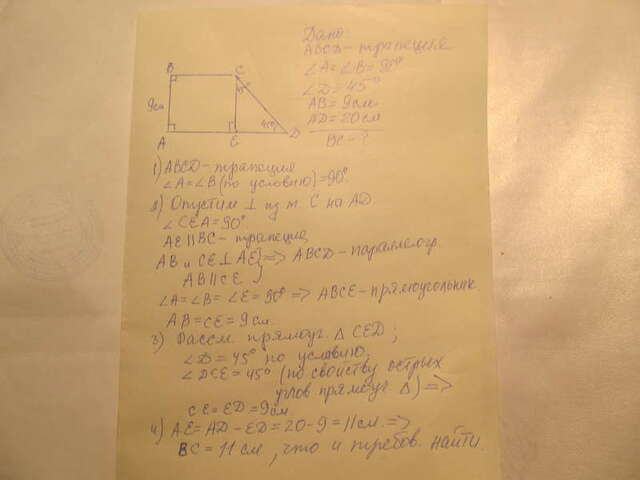 Дано
ABCD - трапеция
∠A = ∠B = 90°
∠D = 45°
AB = 9 см
AD = 20 см
BC - ?
B C
45°
9см
45°
A E D
1) ABCD - трапеция
∠A = ∠B (по условию) = 90°.
2) Опустим ⊥ из т. C на AD.
∠CEA = 90°
AE || BC - трапеция
AB и CE ⊥ AE } => ABCD - параллелогр.
AB || CE
∠A = ∠B = ∠E = 90° => ABCE - прямоугольник
AB = CE = 9 см.
3) Рассм. прямоуг. △ CED;
∠D = 45° по условию;
∠DCE = 45° (по свойству острых
углов прямоуг. △) =>
CE = ED = 9 см
4) AE = AD - ED = 20 - 9 = 11 см. =>
BC = 11 см, что и требов. найти.